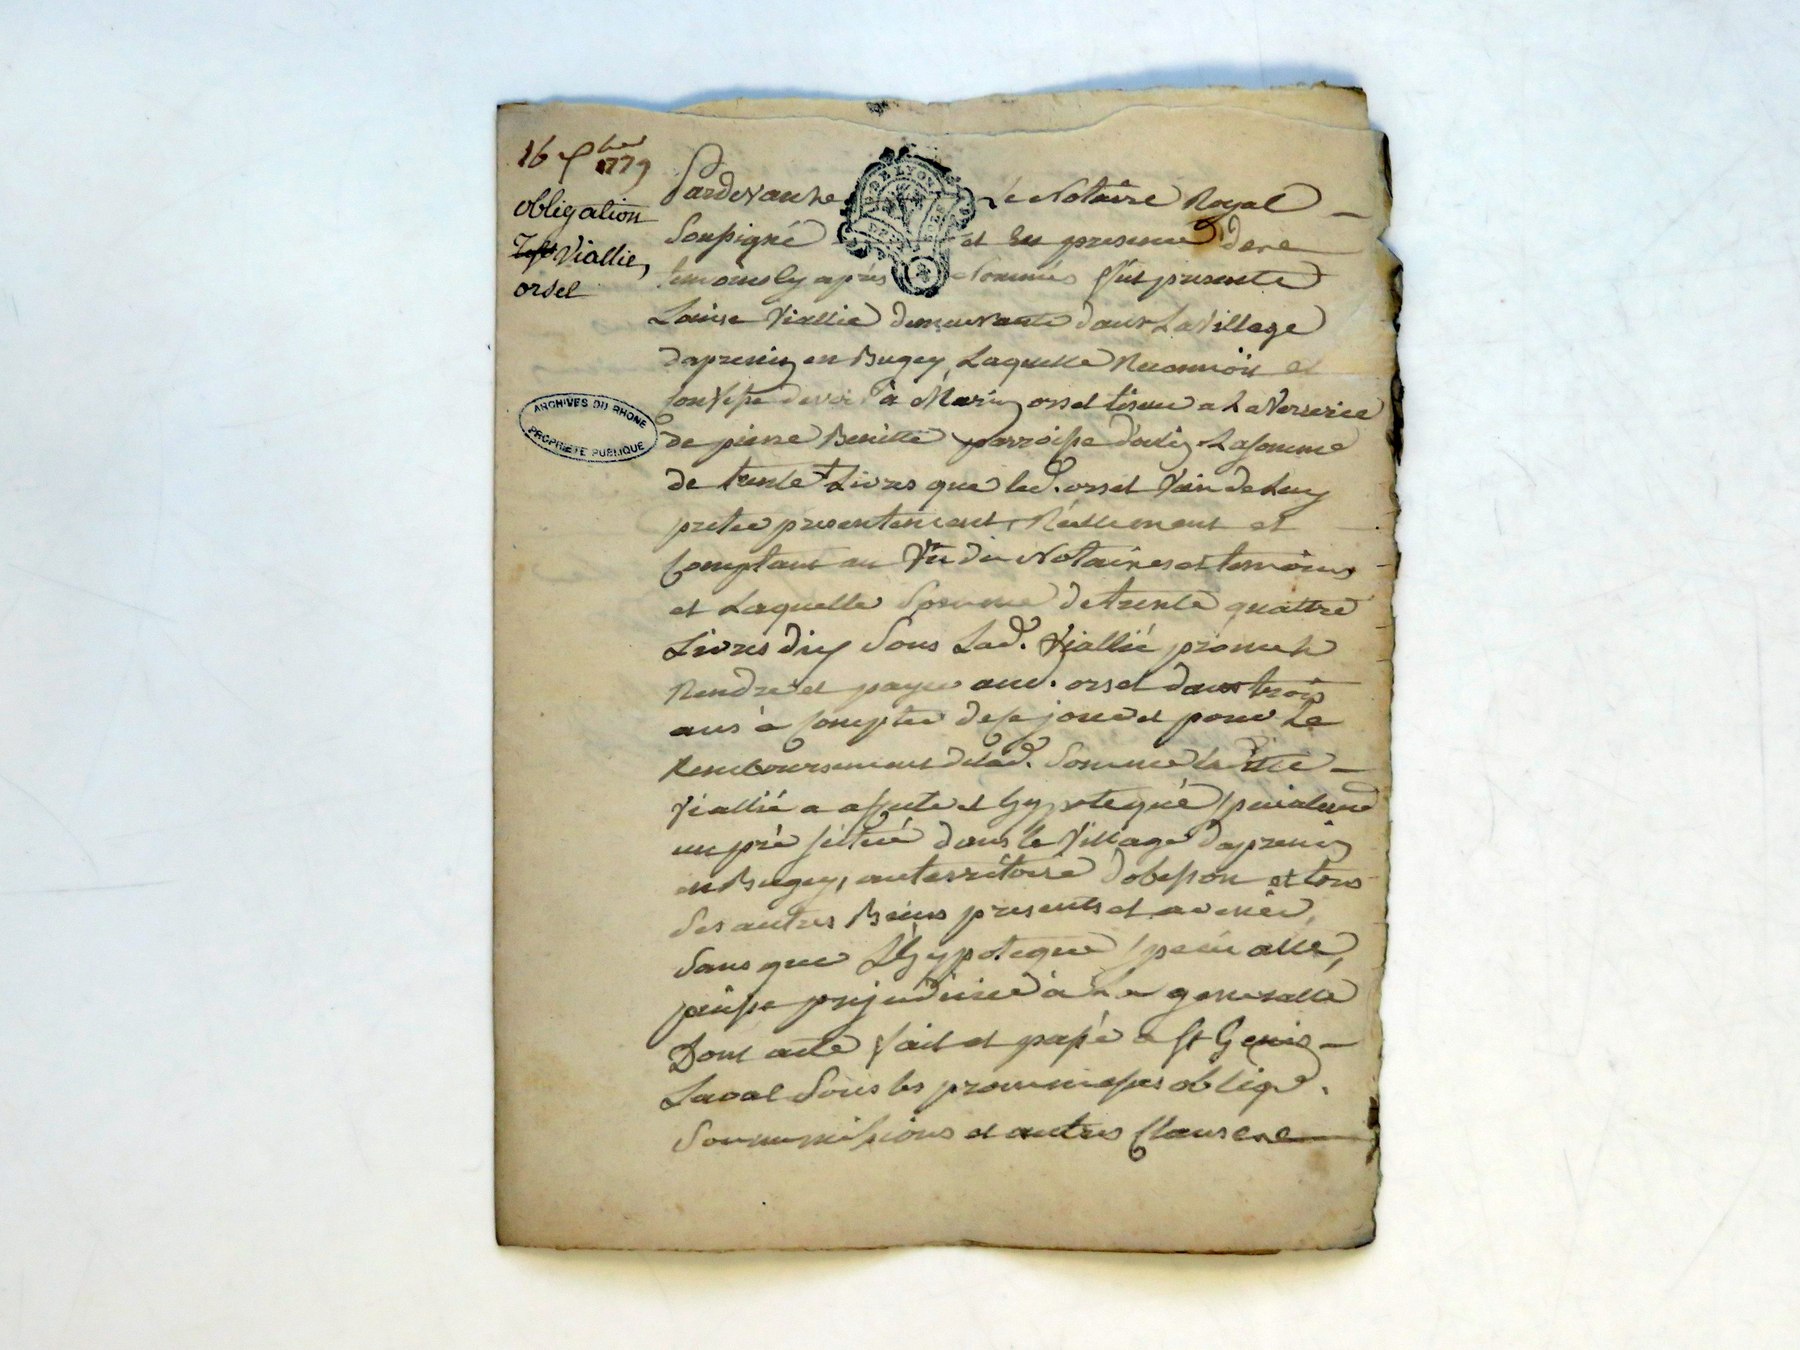 16 7bre 1779
obligation
Viallié,
orset
ARCHIVES DU RHONE
PROPRIÉTÉ PUBLIQUE
DE LYON
Pardevant Le Notaire Royal
Soussigné et en presence de
temoins cy après Nommés fut presente
Louise Viallié demeurante dans Le Village
en Bugey, Laquelle Reconnoit et
Confesse devoir à orset a La Verrerie
de pierre Benitte parroisse Lasomme
de trente Livres que led. orset Vien de Luy
preter presentement Réellement et
Comptant au Vû du Notaires et temoins
et Laquelle Somme de trente quattre
Livres dix Sous Lad. Viallié promet
Rendre et payer aud. orset dans trois
ans à Compter de ce jour et pour Le
Remboursement de lad. Somme laditte
Viallié a affecté et hypotequé specialement
un pré situé dans le Village
en Bugey, au territoire et tous
Ses autres Biens presents et avenir,
Sans que L'hypoteque specialle,
puisse prejudicier à La generalle
Dont acte fait et passé a St Genis
Laval Sous les prommesses oblig.
Soummissions et autres Clauses